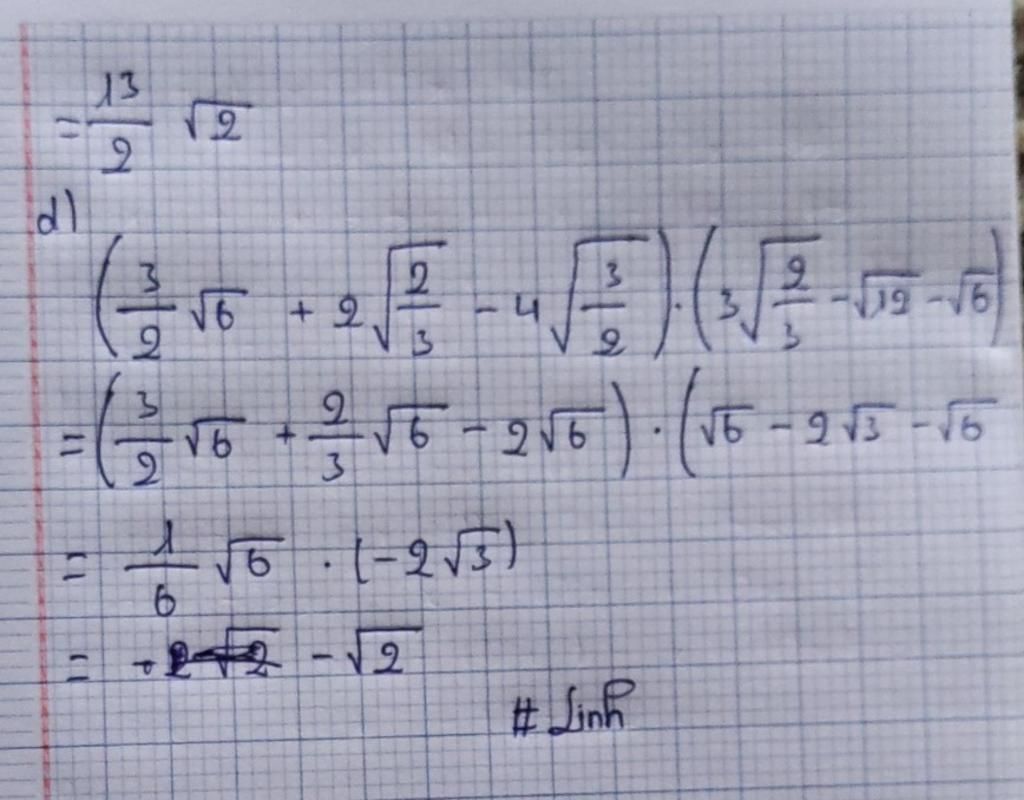 = 13/2 √2
d)
(3/2 √6 + 2√(2/3) - 4√(3/2)) . (3√(2/3) - √12 - √6)
= (3/2 √6 + 2/3 √6 - 2√6) . (√6 - 2√3 - √6
= 1/6 √6 . (-2√3)
= - √2
# Linh